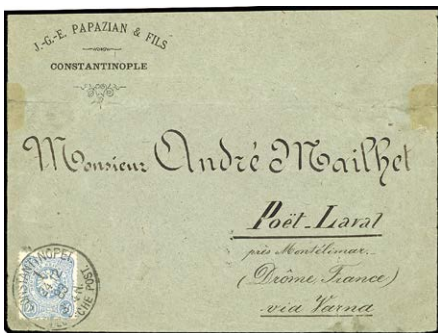 J.-G.-E. PAPAZIAN & FILS
CONSTANTINOPLE
Monsieur André Mailhet
Poët-Laval
près Montélimar.
(Drôme, France)
via Varna
CONSTANTINOPEL